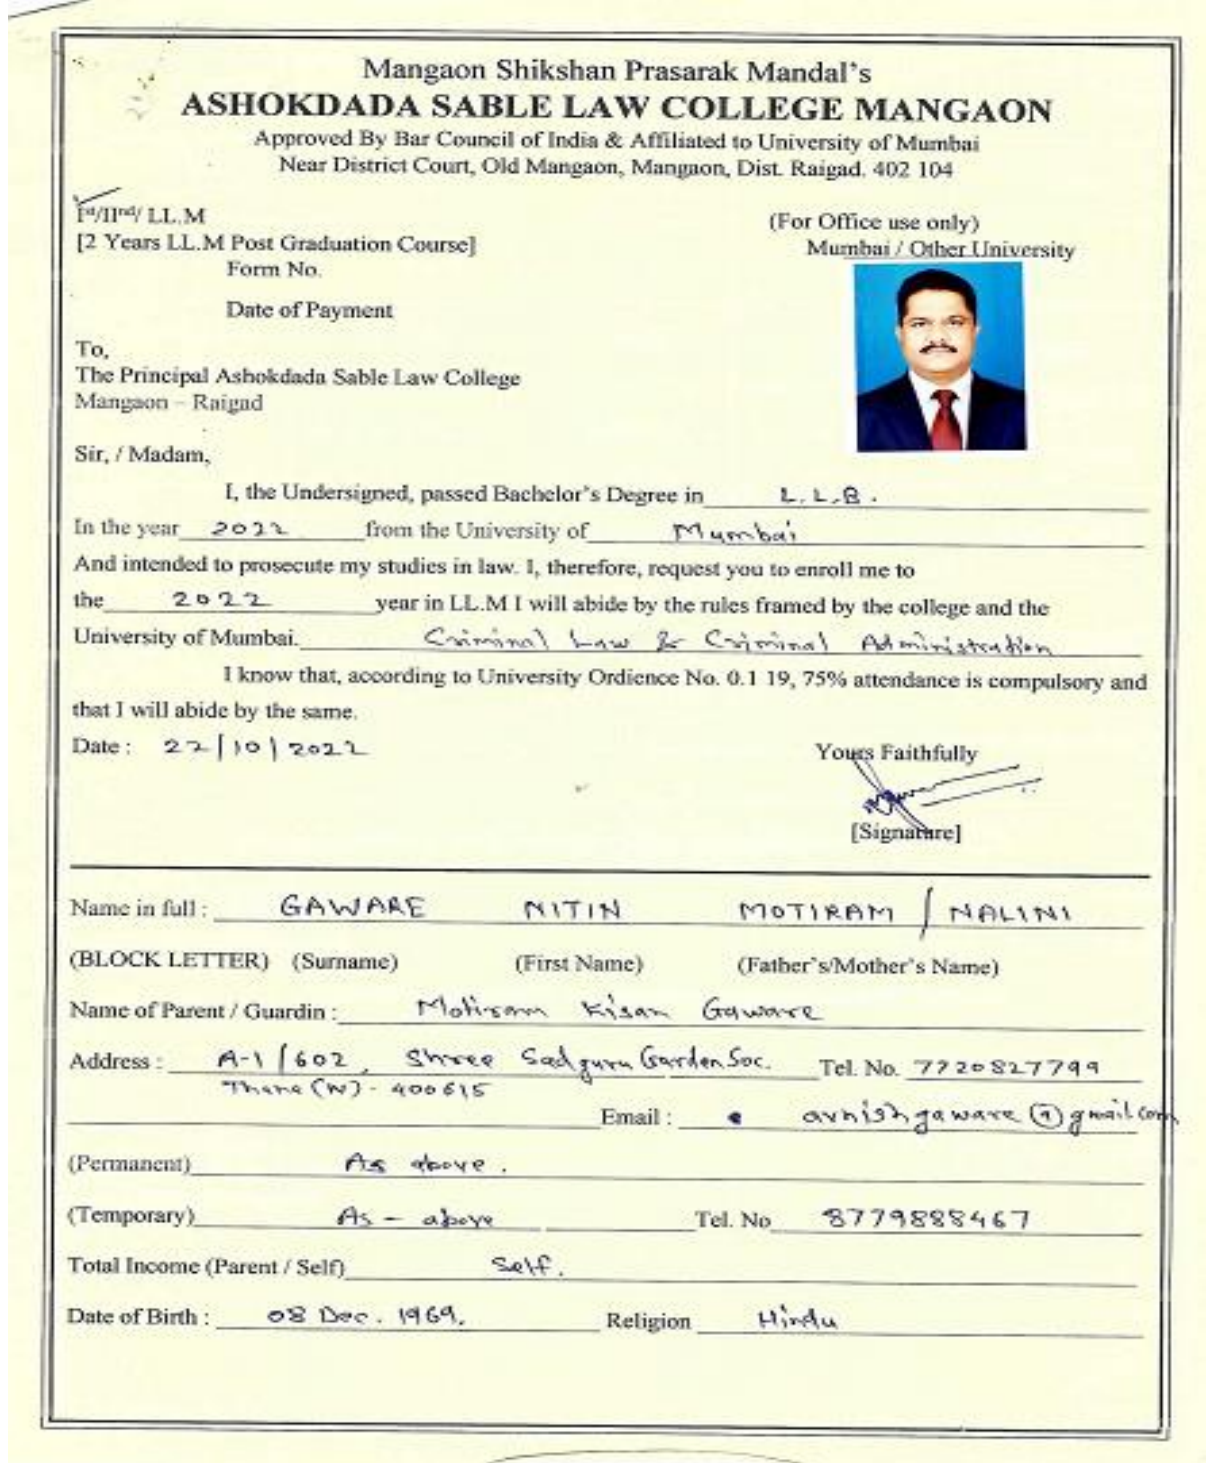 Mangaon Shikshan Prasarak Mandal's
ASHOKDADA SABLE LAW COLLEGE MANGAON
Approved By Bar Council of India & Affiliated to University of Mumbai
Near District Court, Old Mangaon, Mangaon, Dist. Raigad. 402 104
Ist/IInd/ LL.M
(For Office use only)
[2 Years LL.M Post Graduation Course]
Mumbai / Other University
Form No.
Date of Payment
To,
The Principal Ashokdada Sable Law College
Mangaon – Raigad
Sir, / Madam,
I, the Undersigned, passed Bachelor's Degree in L.L.B.
In the year 2022 from the University of Mumbai
And intended to prosecute my studies in law. I, therefore, request you to enroll me to
the 2022 year in LL.M I will abide by the rules framed by the college and the
University of Mumbai. Criminal Law & Criminal Administration
I know that, according to University Ordience No. 0.1 19, 75% attendance is compulsory and
that I will abide by the same.
Date : 22/10/2022
Yours Faithfully
[Signature]
Name in full : GAWARE NITIN MOTIRAM / NALINI
(BLOCK LETTER) (Surname) (First Name) (Father's/Mother's Name)
Name of Parent / Guardin : Motiram Kisan Gaware
Address : A-1/602, Shree Sadguru Garden Soc. Tel. No. 7720827799
Thane (W) - 400615
Email : avnishgaware@gmail.com
(Permanent) As above.
(Temporary) As - above Tel. No 8779888467
Total Income (Parent / Self) Self.
Date of Birth : 08 Dec. 1969. Religion Hindu